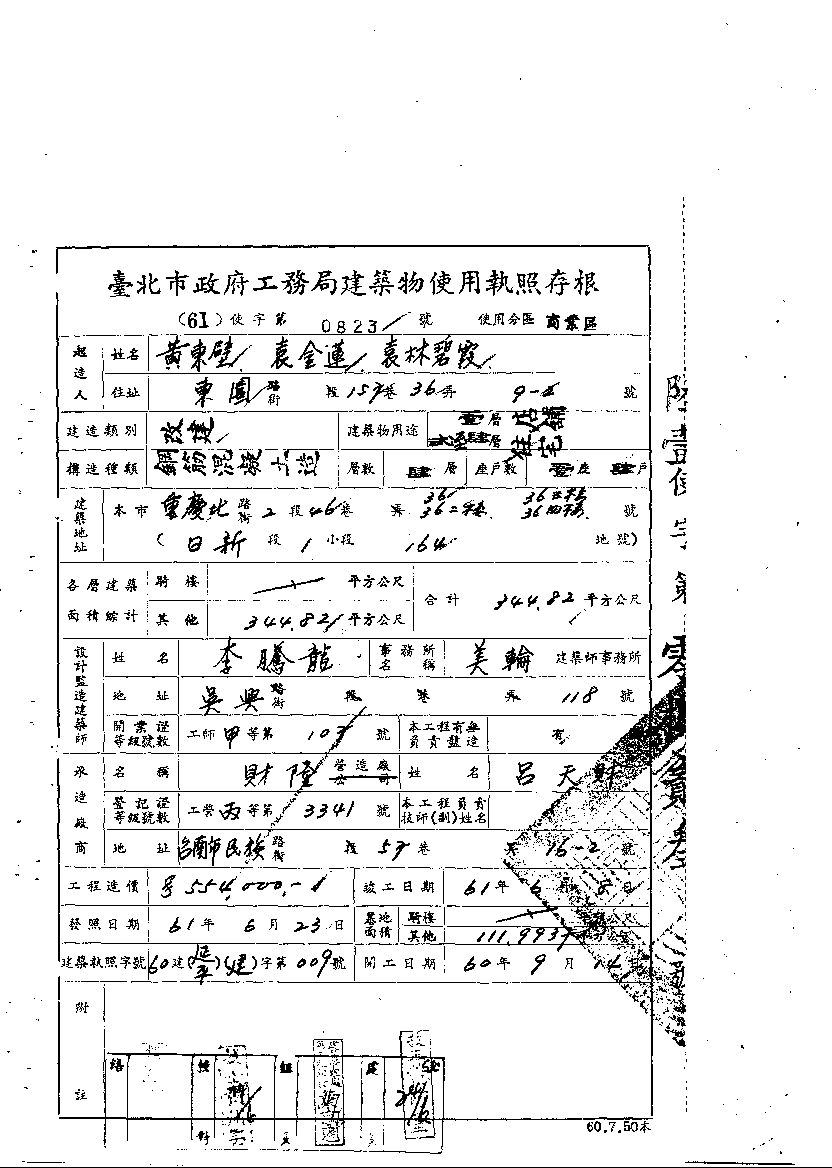 臺北市政府工務局建築物使用執照存根
(61)使字第 0823 號 使用分區 商業區
起造人 姓名 黃東壁 袁金蓮 袁林碧霞
住址 東園路街 段 157巷 36弄 號
建造類別 改建 建築物用途 壹層店舖
層住宅
構造種類 鋼筋混凝土造 層數 肆層 座戶數 壹座 肆戶
建築地址 本市 重慶北路街 2段 46巷 弄 36 36二樓 36三樓 36四樓 號
(日新段 1小段 164 地號)
各層建築面積綜計 騎樓 平方公尺 合計 344.82 平方公尺
其他 344.82 平方公尺
設計監造建築師 姓名 李騰龍 事務所名稱 美輪 建築師事務所
地址 吳興路街 段 巷 弄 118 號
開業證等級號數 工師甲等第 107 號 本工程有無負責監造 有
承造廠商 名稱 財陸 營造廠公司 姓名 呂天財
登記證等級號數 工營丙等第 3341 號 本工程負責技師(副)姓名
地址 台南市民族路街 段 57巷 弄 16-2 號
工程造價 554,000.- 竣工日期 61年 6月 8日
發照日期 61年 6月 23日 基地面積 騎樓 平方公尺
其他 111.9937 平方公尺
建築執照字號 60建(延平)(建)字第 009號 開工日期 60年 9月 14日
附註
60.7.50本
陸壹使字第零